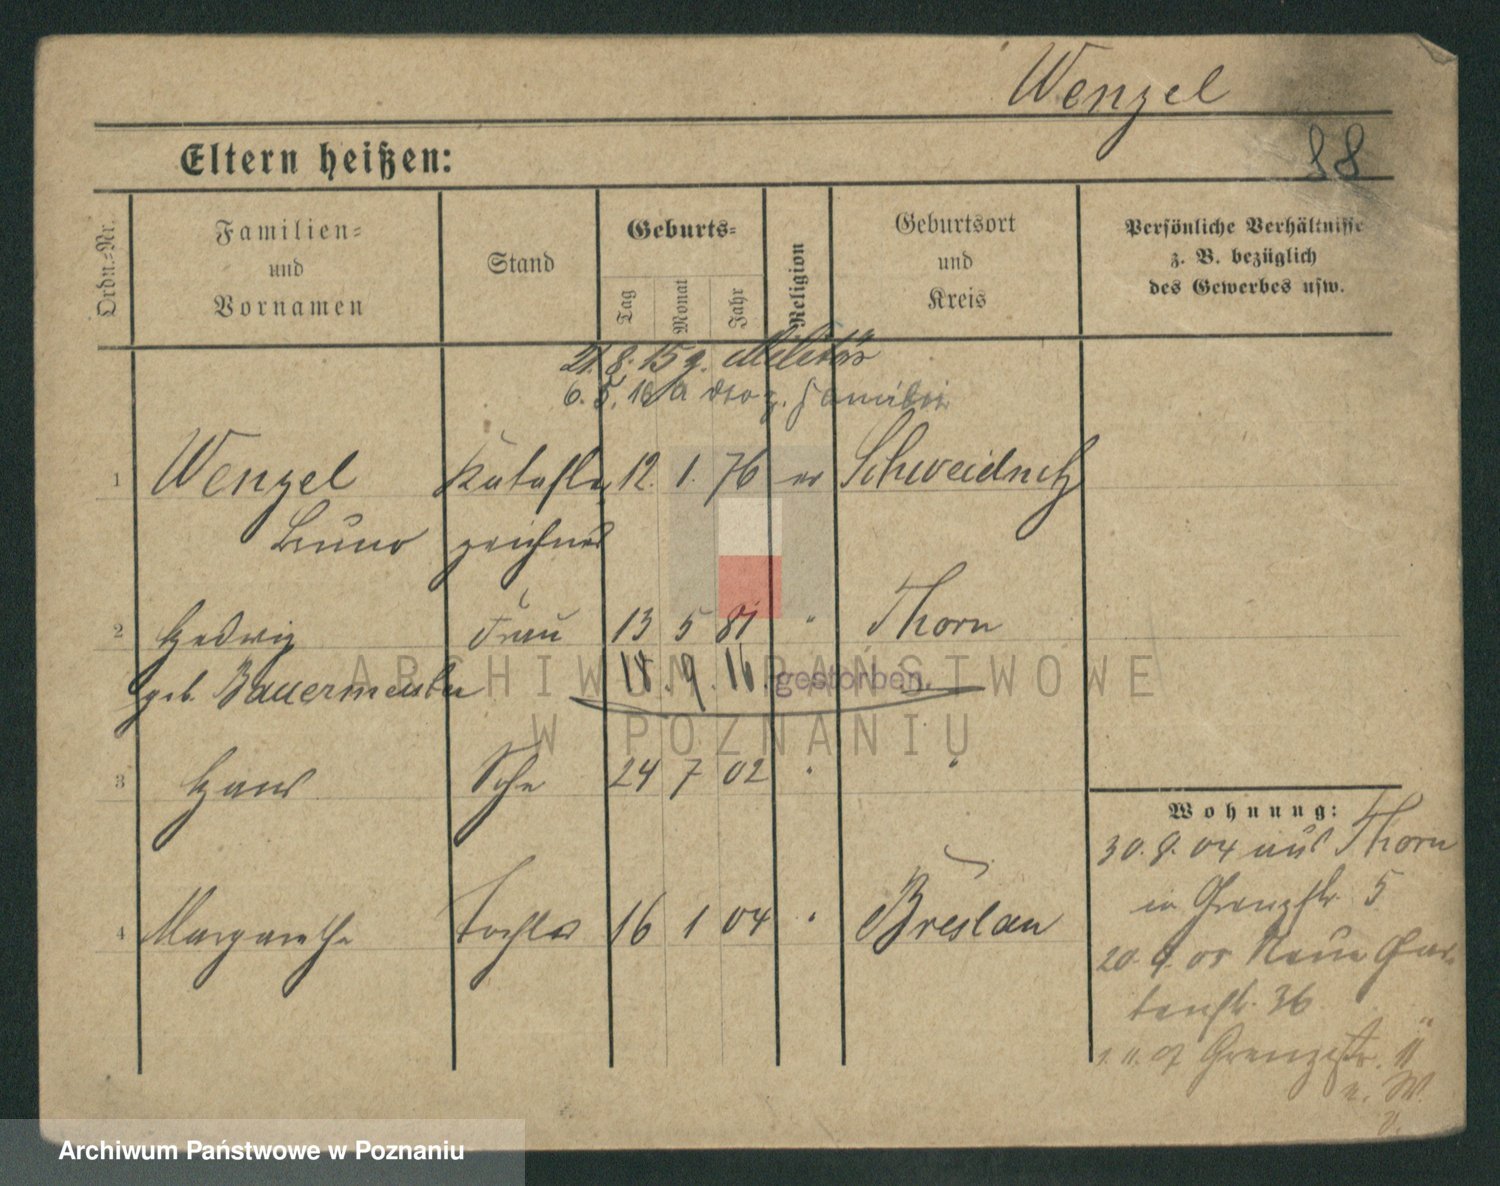 Wenzel
88
Eltern heißen:
Ordn.-Nr.
Familien-
und
Vornamen
Stand
Geburts-
Tag
Monat
Jahr
Religion
Geburtsort
und
Kreis
Persönliche Verhältnisse
z. B. bezüglich
des Gewerbes usw.
21. 8. 15 z. Militär
z. Familie
1 Wenzel Kataster 12. 1. 76 ev Schweidnitz
Bruno zeichner
2 Hedwig Frau 13 5 81 " Thorn
geb. Bauermeister 18. 9. 16. gestorben.
3 Hans Sohn 24 7 02 " "
4 Margarethe Tochter 16 1 04 " Breslau
Wohnung:
30. 9. 04 aus Thorn
in Grenzstr 5
20. 9. 05 Neue Gar-
tenstr. 36
1. 11. 07 Grenzstr.
ARCHIWUM PAŃSTWOWE
W POZNANIU
Archiwum Państwowe w Poznaniu